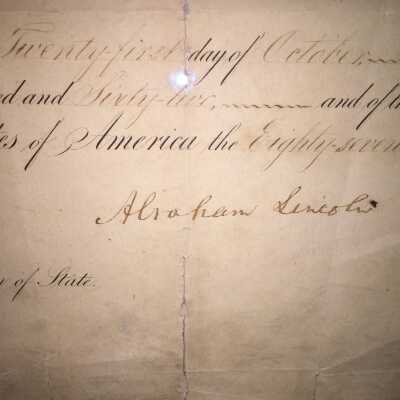 Twenty-first day of October,
ed and Sixty-two, and of th
tes of America the Eighty-seven
Abraham Lincoln
of State.